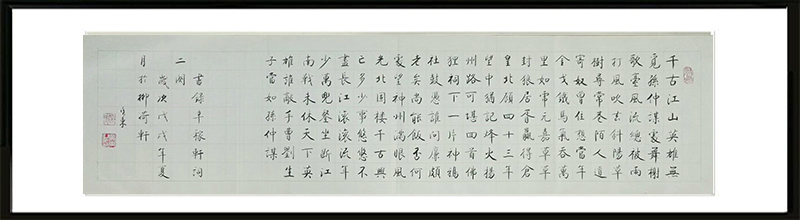 千古江山英雄無
覓孫仲謀處舞榭
歌臺風流總被雨
打風吹去斜陽草
樹尋常巷陌人道
寄奴曾住想當年
金戈鐵馬氣吞萬
里如虎元嘉草草
封狼居胥贏得倉
皇北顧四十三年
望中猶記烽火揚
州路可堪回首佛
狸祠下一片神鴉
社鼓憑誰問廉頗
老矣尚能飯否何
處望神州滿眼風
光北固樓千古興
亡多少事悠悠不
盡長江滾滾流年
少萬兜鍪坐斷江
南戰未休天下英
雄誰敵手曹劉生
子當如孫仲謀
書錄辛稼軒詞
二闋
歲次戊戌年夏
月於柳荷軒